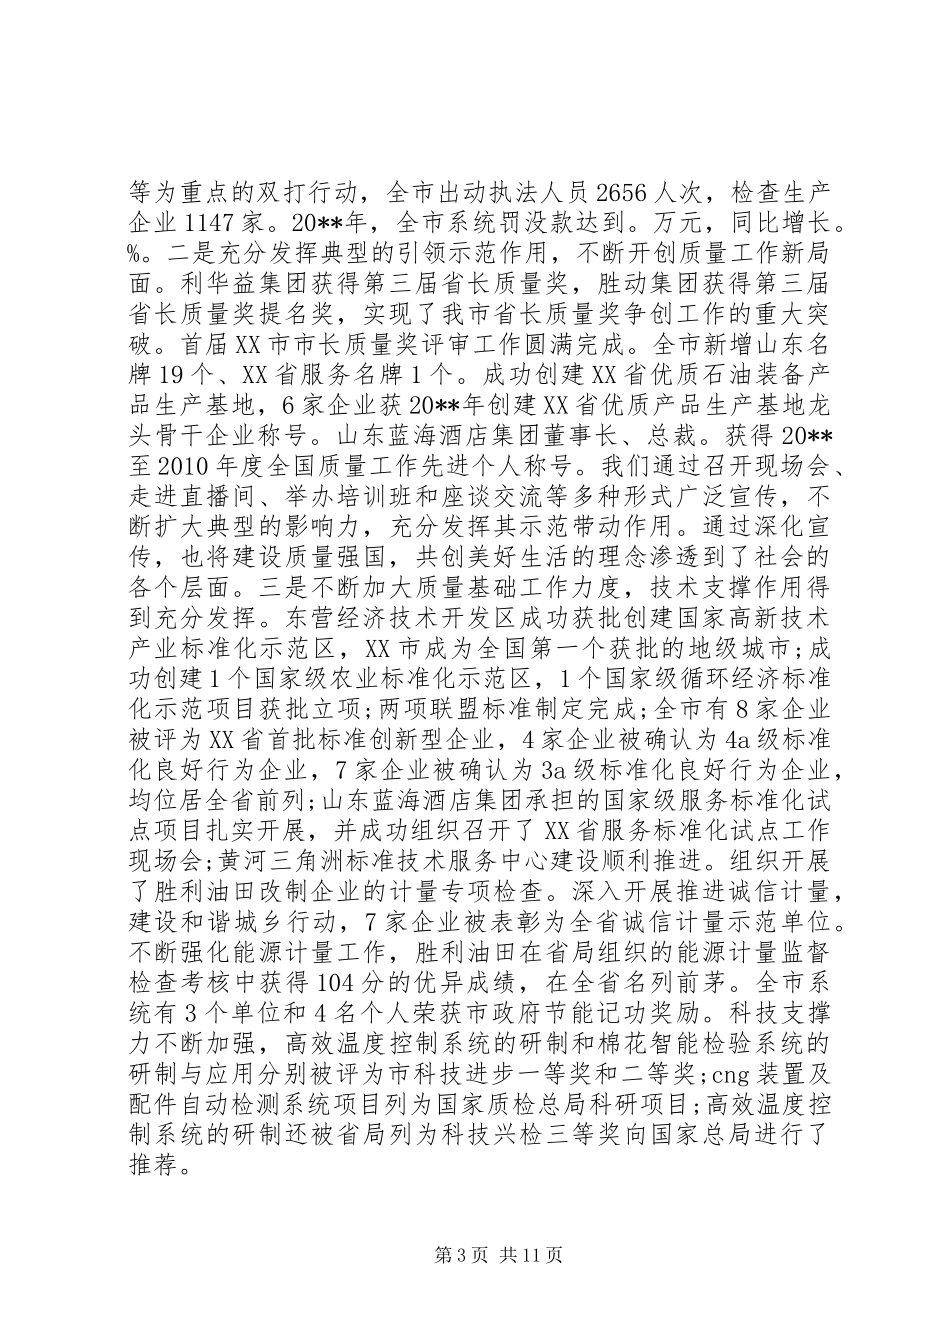 等为重点的双打行动，全市出动执法人员 2656 人次，检查生产
企业 1147 家。20**年，全市系统罚没款达到。万元，同比增长。
%。二是充分发挥典型的引领示范作用，不断开创质量工作新局
面。利华益集团获得第三届省长质量奖，胜动集团获得第三届
省长质量奖提名奖，实现了我市省长质量奖争创工作的重大突
破。首届 XX 市市长质量奖评审工作圆满完成。全市新增山东名
牌 19 个、XX 省服务名牌 1 个。成功创建 XX 省优质石油装备产
品生产基地，6 家企业获 20**年创建 XX 省优质产品生产基地龙
头骨干企业称号。山东蓝海酒店集团董事长、总裁。获得 20**
至 2010 年度全国质量工作先进个人称号。我们通过召开现场会、
走进直播间、举办培训班和座谈交流等多种形式广泛宣传，不
断扩大典型的影响力，充分发挥其示范带动作用。通过深化宣
传，也将建设质量强国，共创美好生活的理念渗透到了社会的
各个层面。三是不断加大质量基础工作力度，技术支撑作用得
到充分发挥。东营经济技术开发区成功获批创建国家高新技术
产业标准化示范区，XX 市成为全国第一个获批的地级城市;成
功创建 1 个国家级农业标准化示范区，1 个国家级循环经济标准
化示范项目获批立项;两项联盟标准制定完成;全市有 8 家企业
被评为 XX 省首批标准创新型企业，4 家企业被确认为 4a 级标准
化良好行为企业，7 家企业被确认为 3a 级标准化良好行为企业，
均位居全省前列;山东蓝海酒店集团承担的国家级服务标准化试
点项目扎实开展，并成功组织召开了 XX 省服务标准化试点工作
现场会;黄河三角洲标准技术服务中心建设顺利推进。组织开展
了胜利油田改制企业的计量专项检查。深入开展推进诚信计量，
建设和谐城乡行动，7 家企业被表彰为全省诚信计量示范单位。
不断强化能源计量工作，胜利油田在省局组织的能源计量监督
检查考核中获得 104 分的优异成绩，在全省名列前茅。全市系
统有 3 个单位和 4 名个人荣获市政府节能记功奖励。科技支撑
力不断加强，高效温度控制系统的研制和棉花智能检验系统的
研制与应用分别被评为市科技进步一等奖和二等奖;cng 装置及
配件自动检测系统项目列为国家质检总局科研项目;高效温度控
制系统的研制还被省局列为科技兴检三等奖向国家总局进行了
推荐。
第 3 页 共 11 页